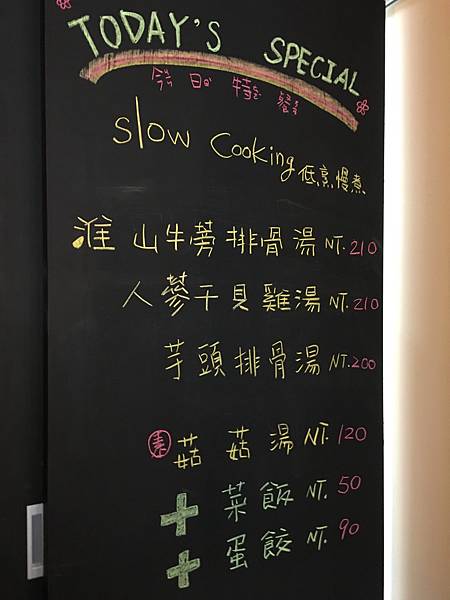 TODAY'S SPECIAL
今日特餐
slow cooking 低烹慢煮
淮山牛蒡排骨湯 NT.210
人蔘干貝雞湯 NT.210
芋頭排骨湯 NT.200
素 菇菇湯 NT.120
+ 菜飯 NT.50
+ 蛋餃 NT.90